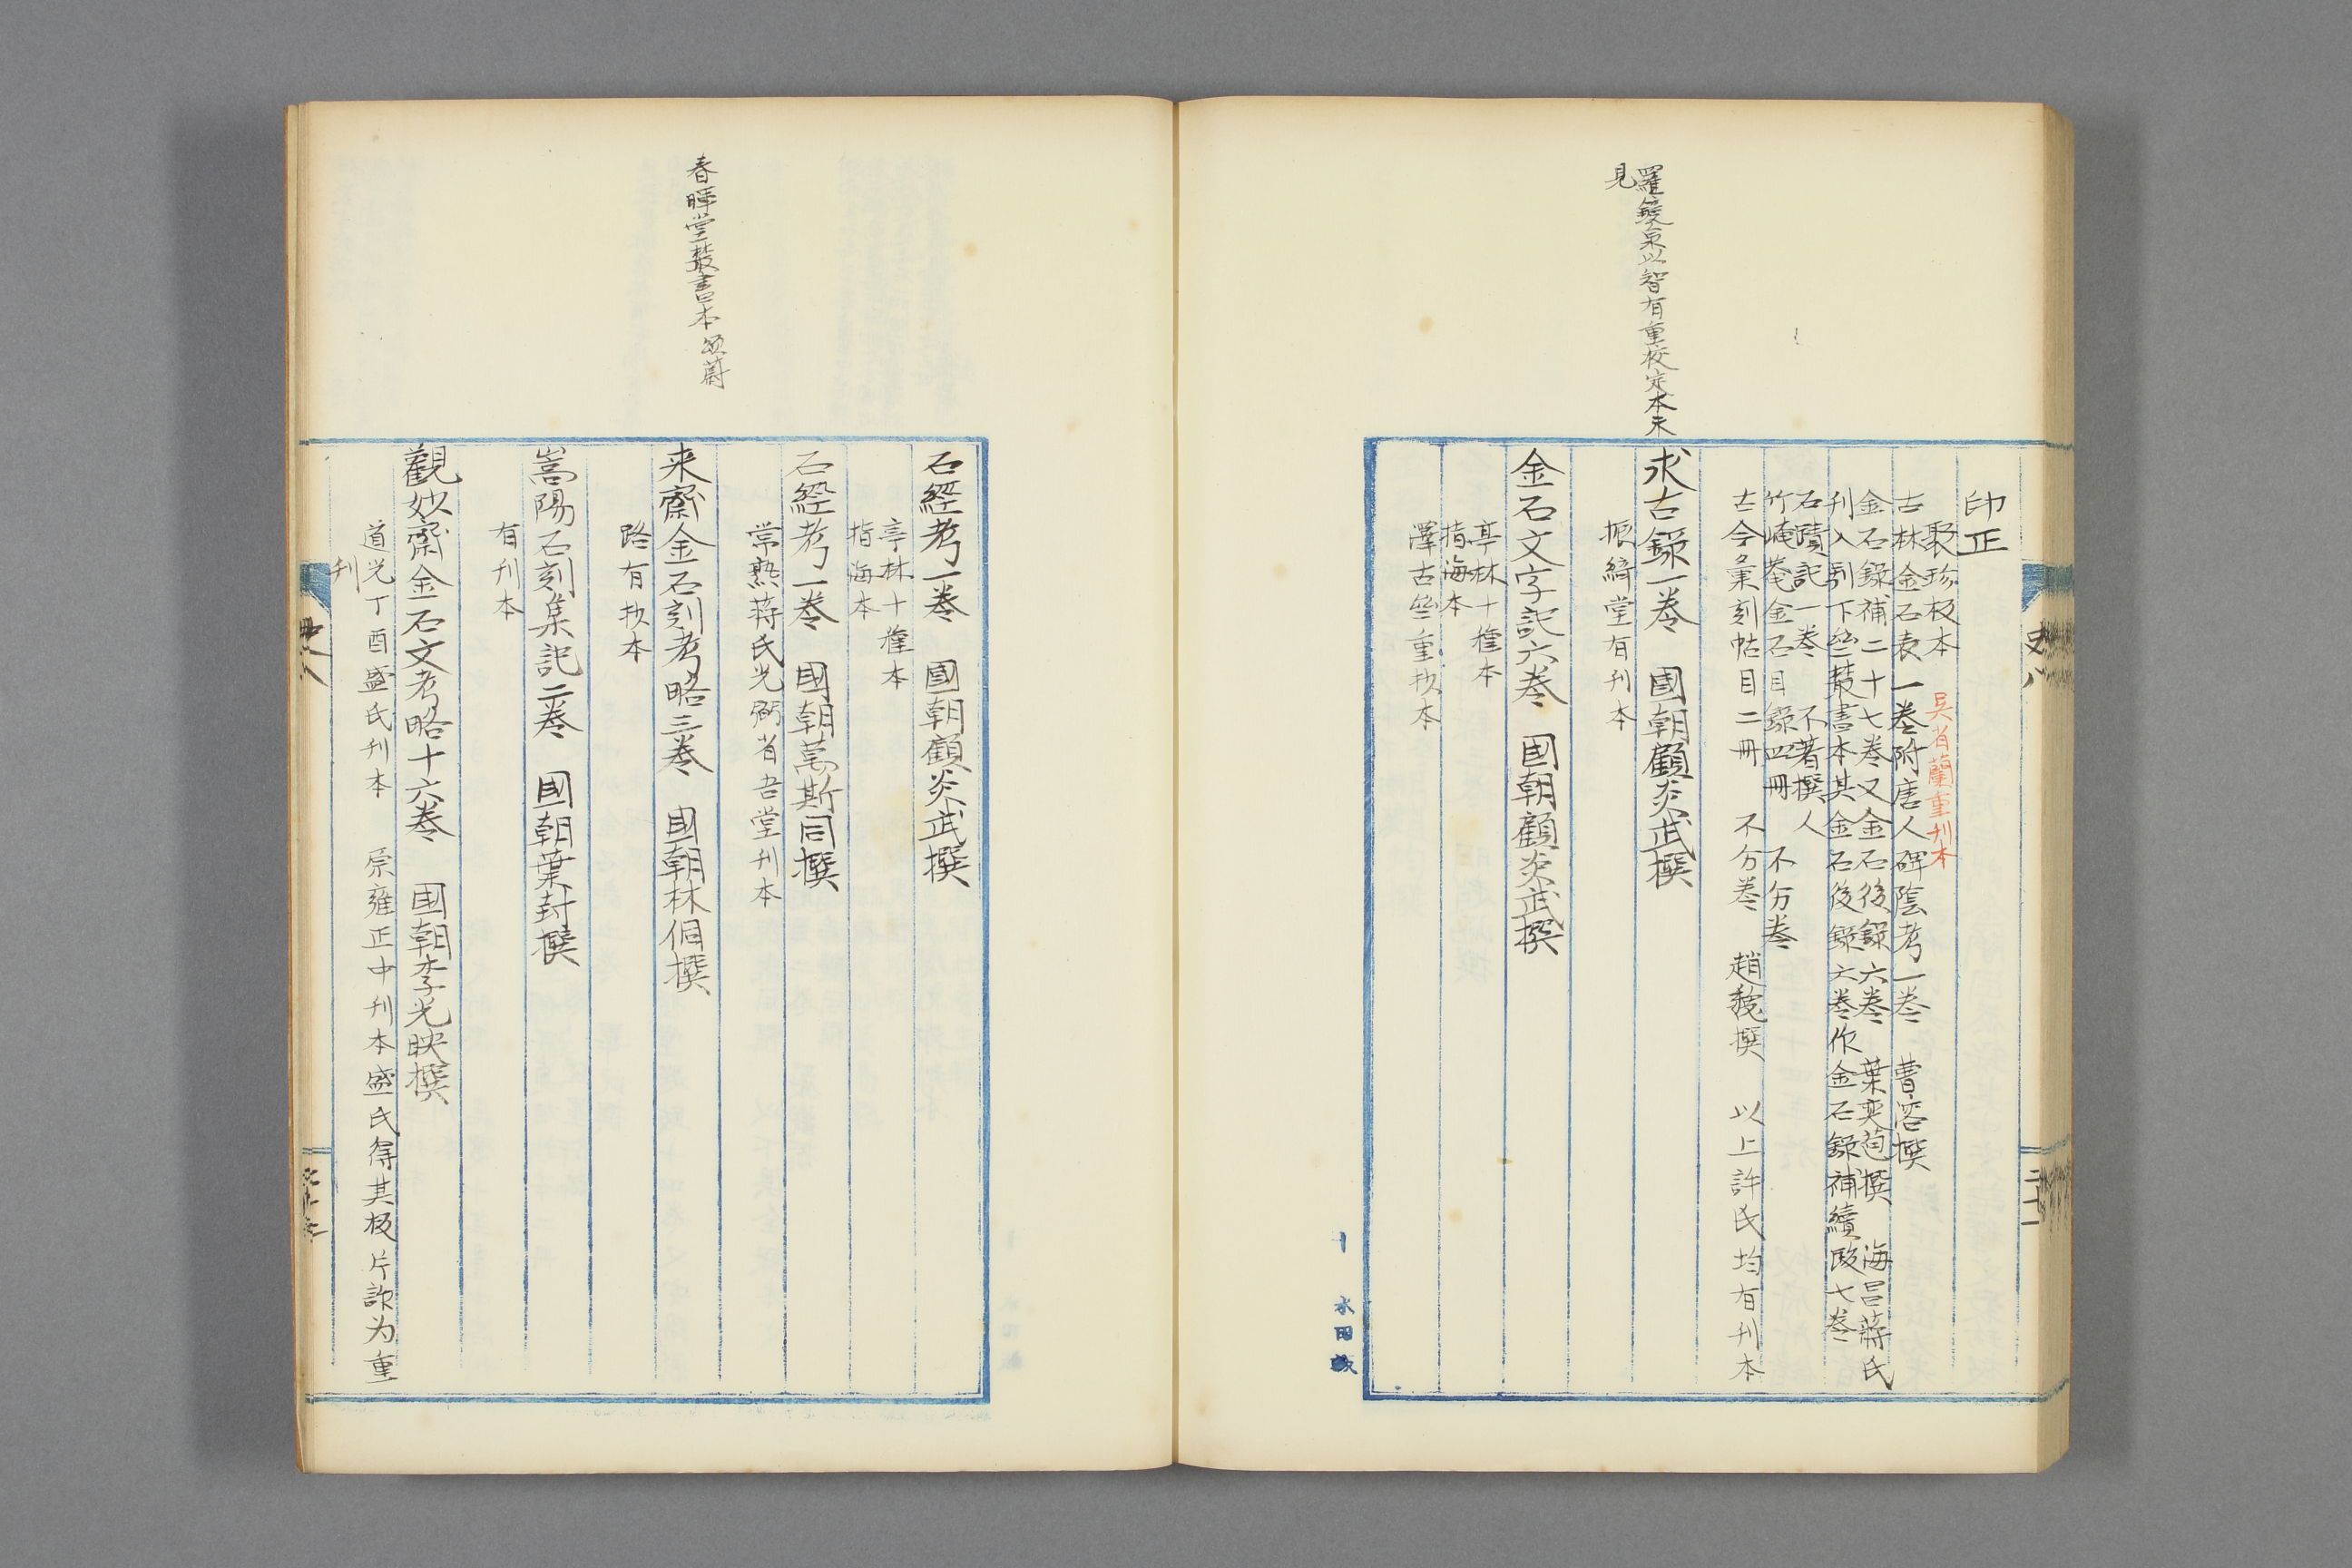 印正
聚珍板本 吳省蘭重刊本
古林金石表一卷附唐人碑陰考一卷 曹溶撰
金石錄補二十七卷又金石後錄六卷 葉奕苞撰 海昌蔣氏
刊入別下些叢書本其金石後錄六卷作金石錄補續跋七卷
石蹟記一卷 不著撰人
竹崦盦金石目錄四冊 不分卷
古今彙刻帖目二冊 不分卷 趙魏撰 以上許氏均有刊本
羅鏡泉以智有重校定本未
見
求古錄一卷 國朝顧炎武撰
振綺堂有刊本
金石文字記六卷 國朝顧炎武撰
亭林十種本
指海本
澤古些重校本
史八
二十一
石經考一卷 國朝顧炎武撰
亭林十種本
指海本
石經考一卷 國朝萬斯同撰
常熟蔣氏光弼省吾堂刊本
春暉堂叢書本
頌蔚
来齋金石刻考略三卷 国朝林侗撰
路有抄本
嵩陽石刻集記二卷 國朝葉封撰
有刊本
觀妙齋金石文考略十六卷 国朝李光暎撰
道光丁酉盛氏刊本 原雍正中刊本盛氏得其板片詐为重
刊